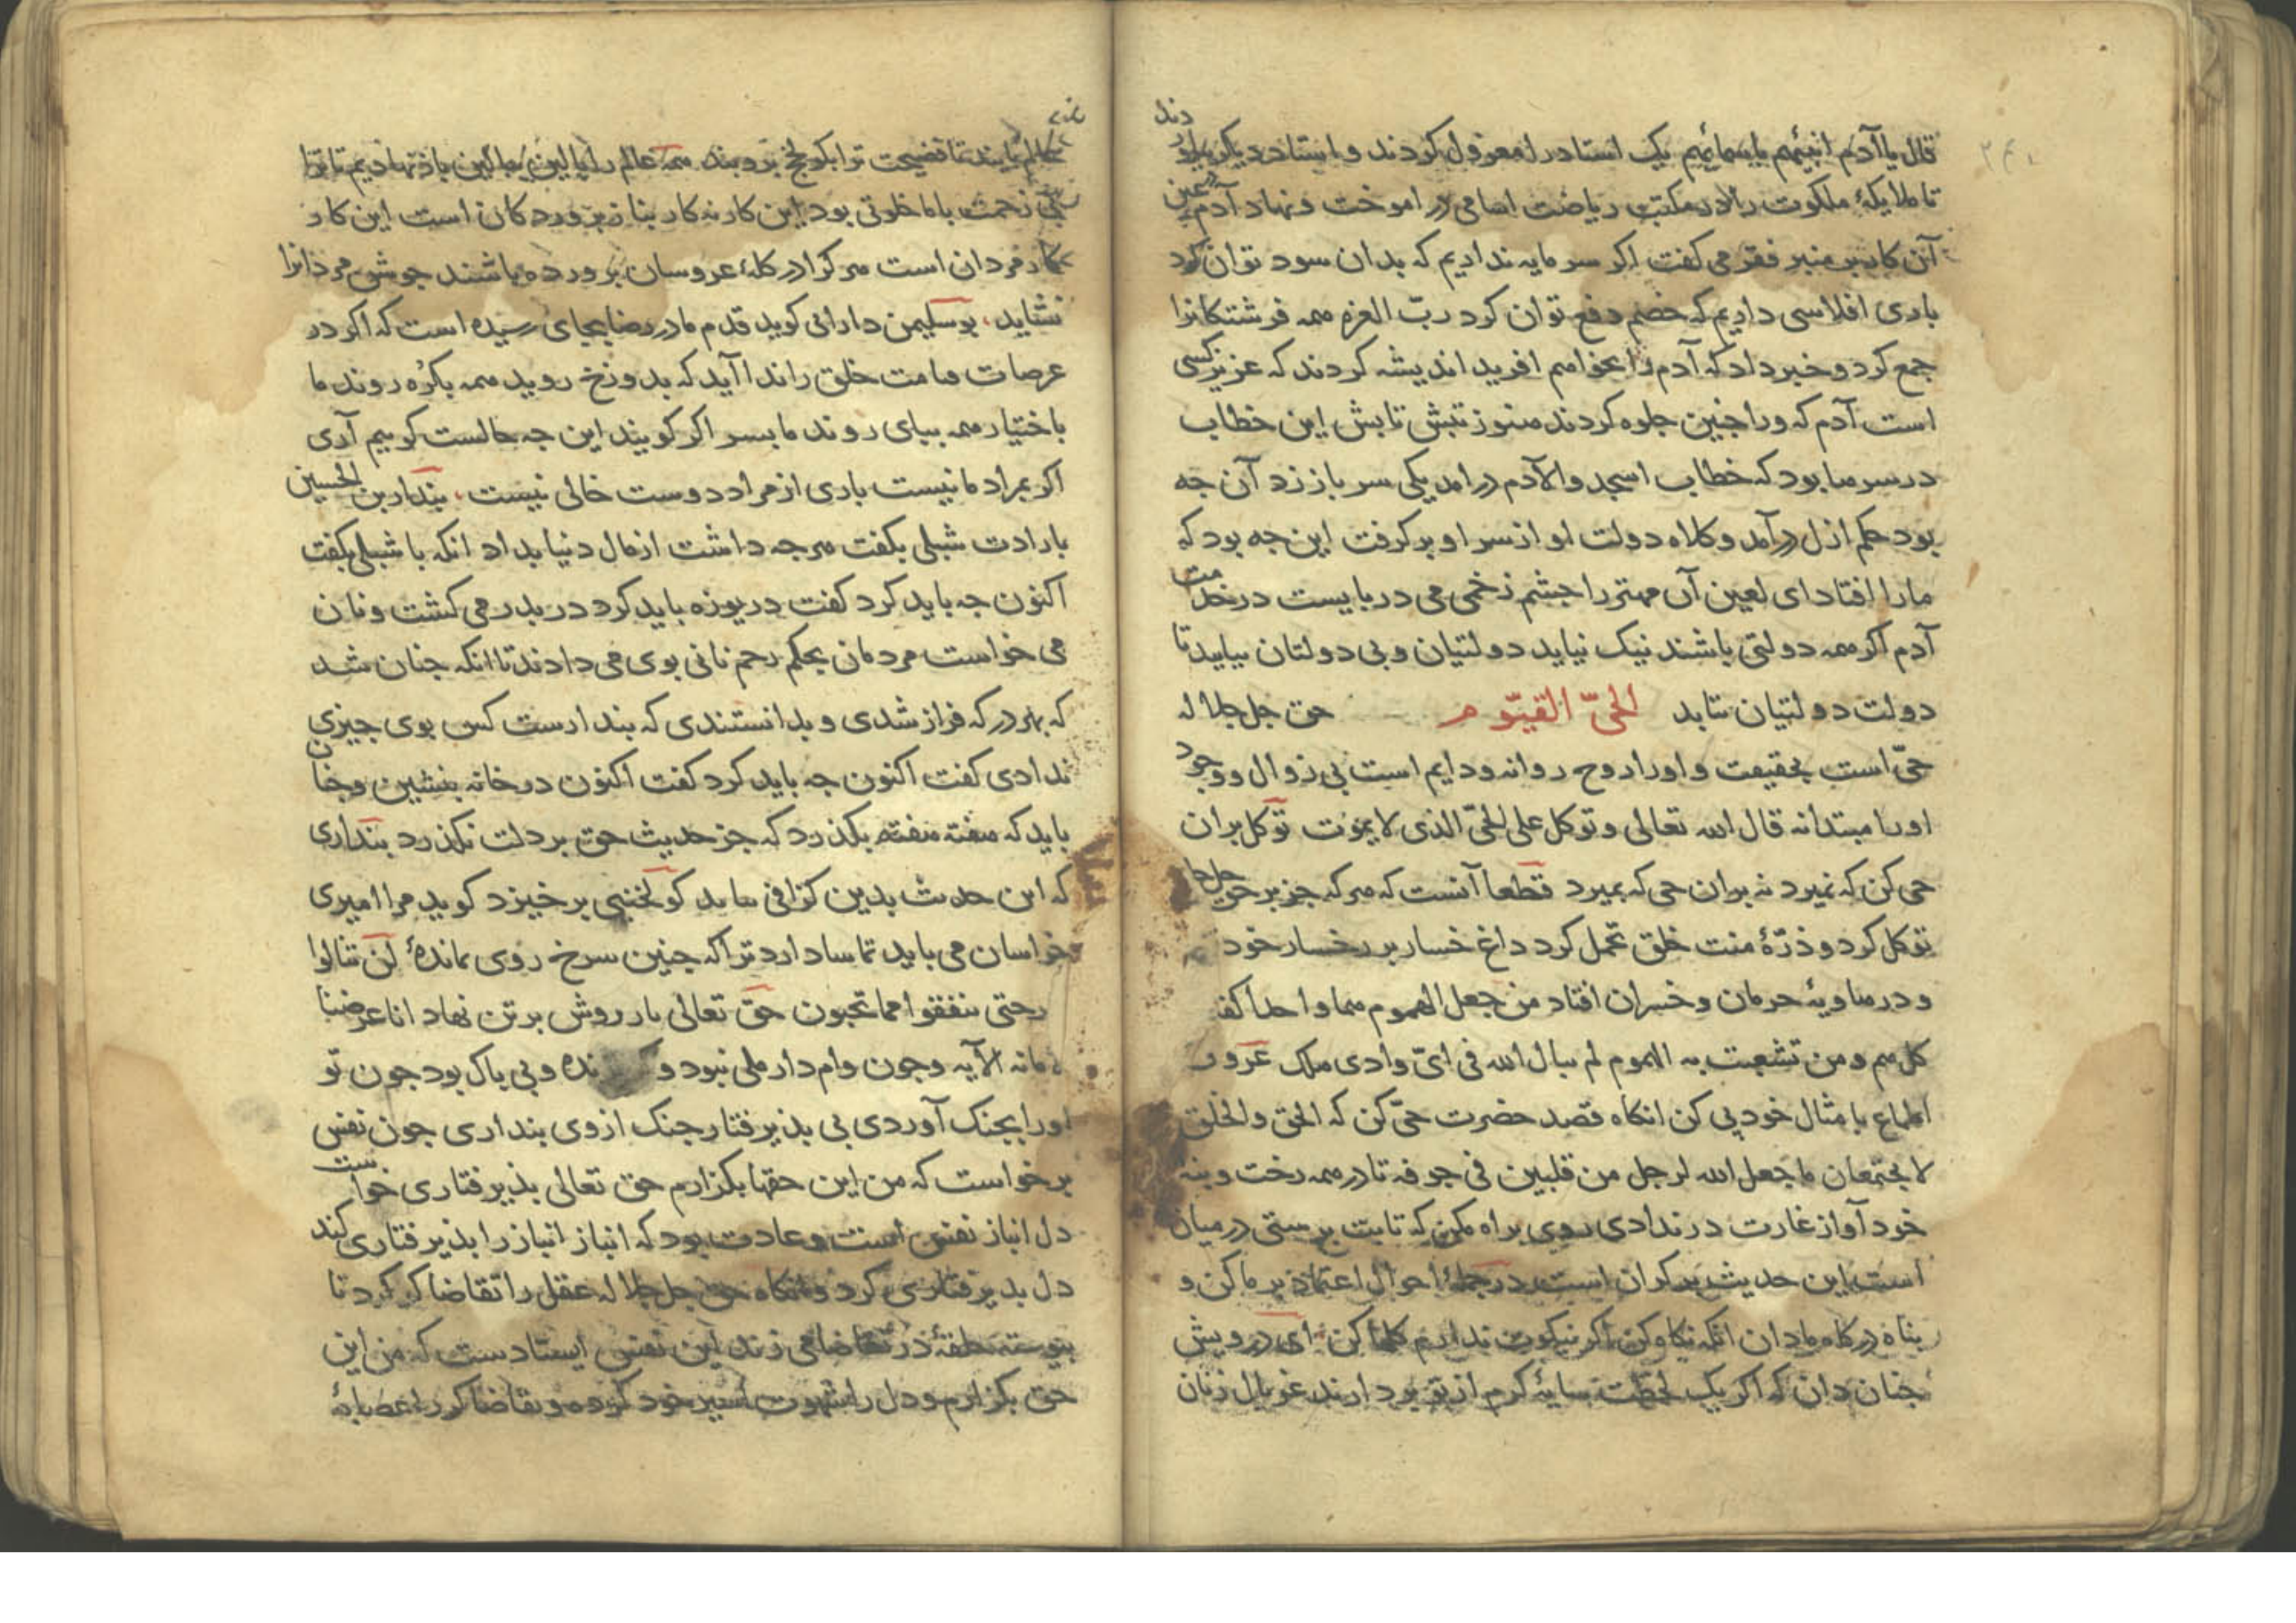 قال یا آدم انبئهم باسمائهم یک استاد را معزول کردند و استاد دیگر بلو دند
تا ملایکهٔ ملکوت را در مکتب ریاضت اسامی در اموخت و نهاد آدم
آن کاه بر منبر فقر می کفت اکر سرمایه نداریم که بدان سود توان کرد
باری افلاسی داریم که خصم دفع توان کرد ربّ العزه همه فرشتکانرا
جمع کرد و خبر داد که آدم را بخواهم افرید اندیشه کردند که عزیز کسی
است آدم که ورا جنین جلوه کردند هنوز تبش تابش این خطاب
در سر ما بود که خطاب اسجدوا لآدم در امد یکی سر باز زد آن جه
بود حکم ازل درآمد و کلاه دولت او از سر او بر کرفت این جه بود که
ما را افتاد ای لعین آن مهتر را جشم زخمی می دربایست در خدمت
آدم اکر همه دولتی باشند نیک نیاید دولتیان و بی دولتان بباید تا
دولت دولتیان بتابد الحیّ القیّوم حق جل جلاله
حیّ است بحقیقت و او را روح روا نه و دایم است بی زوال و وجود
او را مبتدا نه قال الله تعالی و توکل علی الحیّ الذی لا یموت توکل بران
حی کن که نمیرد نه بران حی که بمیرد قطعا آنست که هر که جز بر حق جل جلا
توکل کرد و ذرّهٔ منت خلق تحمل کرد داغ خسار بر رخسار خود
و در هاویهٔ حرمان و خسران افتاد من جعل الهموم هما واحدا کفا
کل هم و من تشعبت به الهموم لم یبال الله فی ایّ وادی هلک
اطماع با مثال خود پی کن انکاه قصد حضرت حیّ کن که الحق و الخلق
لا یجتمعان ما جعل الله لرجل من قلبین فی جوفه تا در همه رخت و بنه
خود آواز غارت در ندادی روی براه مکن که تا بت پرستی در میان
است این حدیث بر کران است در جملهٔ احوال اعتماد بر ما کن و
بناه درکاه ما دان انکه نکاه کن اکر نیکوت نداریم کلها کن ای درویش
جنان دان که اکر یک لحظت سایهٔ کرم از تو بردارند غربال زنان
عالم بایند تا فضیحت ترا بکویخ همه عالم را باز نهادیم تا ترا
بی زحمت با ما خلوتی بود این کار نه کار بناز پرورد کان است این کار
کار مردان است هر کرا در کلهٔ عروسان پرورده باشند جوشن مردانرا
نشاید بو سلیمن دارانی کوید قدم ما در رضا بجای رسیده است که اکر در
عرصات قیامت خلق را ندا آید که بدوزخ روید همه بکره روند ما
باختیار همه ببای روند ما بسر اکر کویند این جه حالست کوییم آری
اکر بمراد ما نیست باری از مراد دوست خالی نیست بندار بن الحسین
بارادت شبلی بکفت هر جه داشت از مال دنیا بداد انکه با شبلی بکفت
اکنون جه باید کرد کفت دریوزه باید کرد در بدر می کشت و نان
می خواست مردمان بحکم رحم نانی بوی می دادند تا انکه جنان شد
که بهر در که فراز شدی و بدانستندی که بندارست کس بوی جیزی
ندادی کفت اکنون جه باید کرد کفت اکنون در خانه بنشین و جنان
باید که هفته هفته بکذرد که جز حدیث حق بر دلت نکذرد بنداری
که این حدیث بدین کزافی کوید مرا امیری
خراسان می باید تا ترا که جنین سرخ روی بماندهٔ لن تنالوا
حتی تنفقوا مما تحبون حق تعالی بار روش بر تن نهاد انا عرضنا
الامانه الآیه و جون وام دار ملی نبود و نده و بی باک بود جون تو
او را بجنک آوردی بی بذیرفتار جنک از وی بنداری جون نفس
برخواست که من این حقها بکزارم حق تعالی بذیرفتاری خواست
دل انباز نفس است و عادت بود که انباز انباز را بذیرفتاری کند
دل بذیرفتاری کرد و انکاه حق جل جلاله عقل را تقاضا کر کرد تا
بیوسته حلقهٔ در تقاضا می زند این نفس ایستادست که من این
حق بکزارم و دل را شهوت اسیر خود کرده و تقاضا کر را